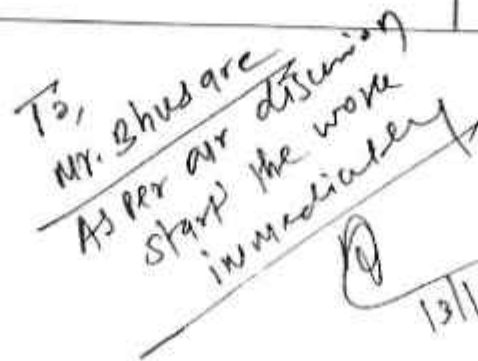 To,
Mr. Bhusare
As per our discussion
start the work
immediately
13/1